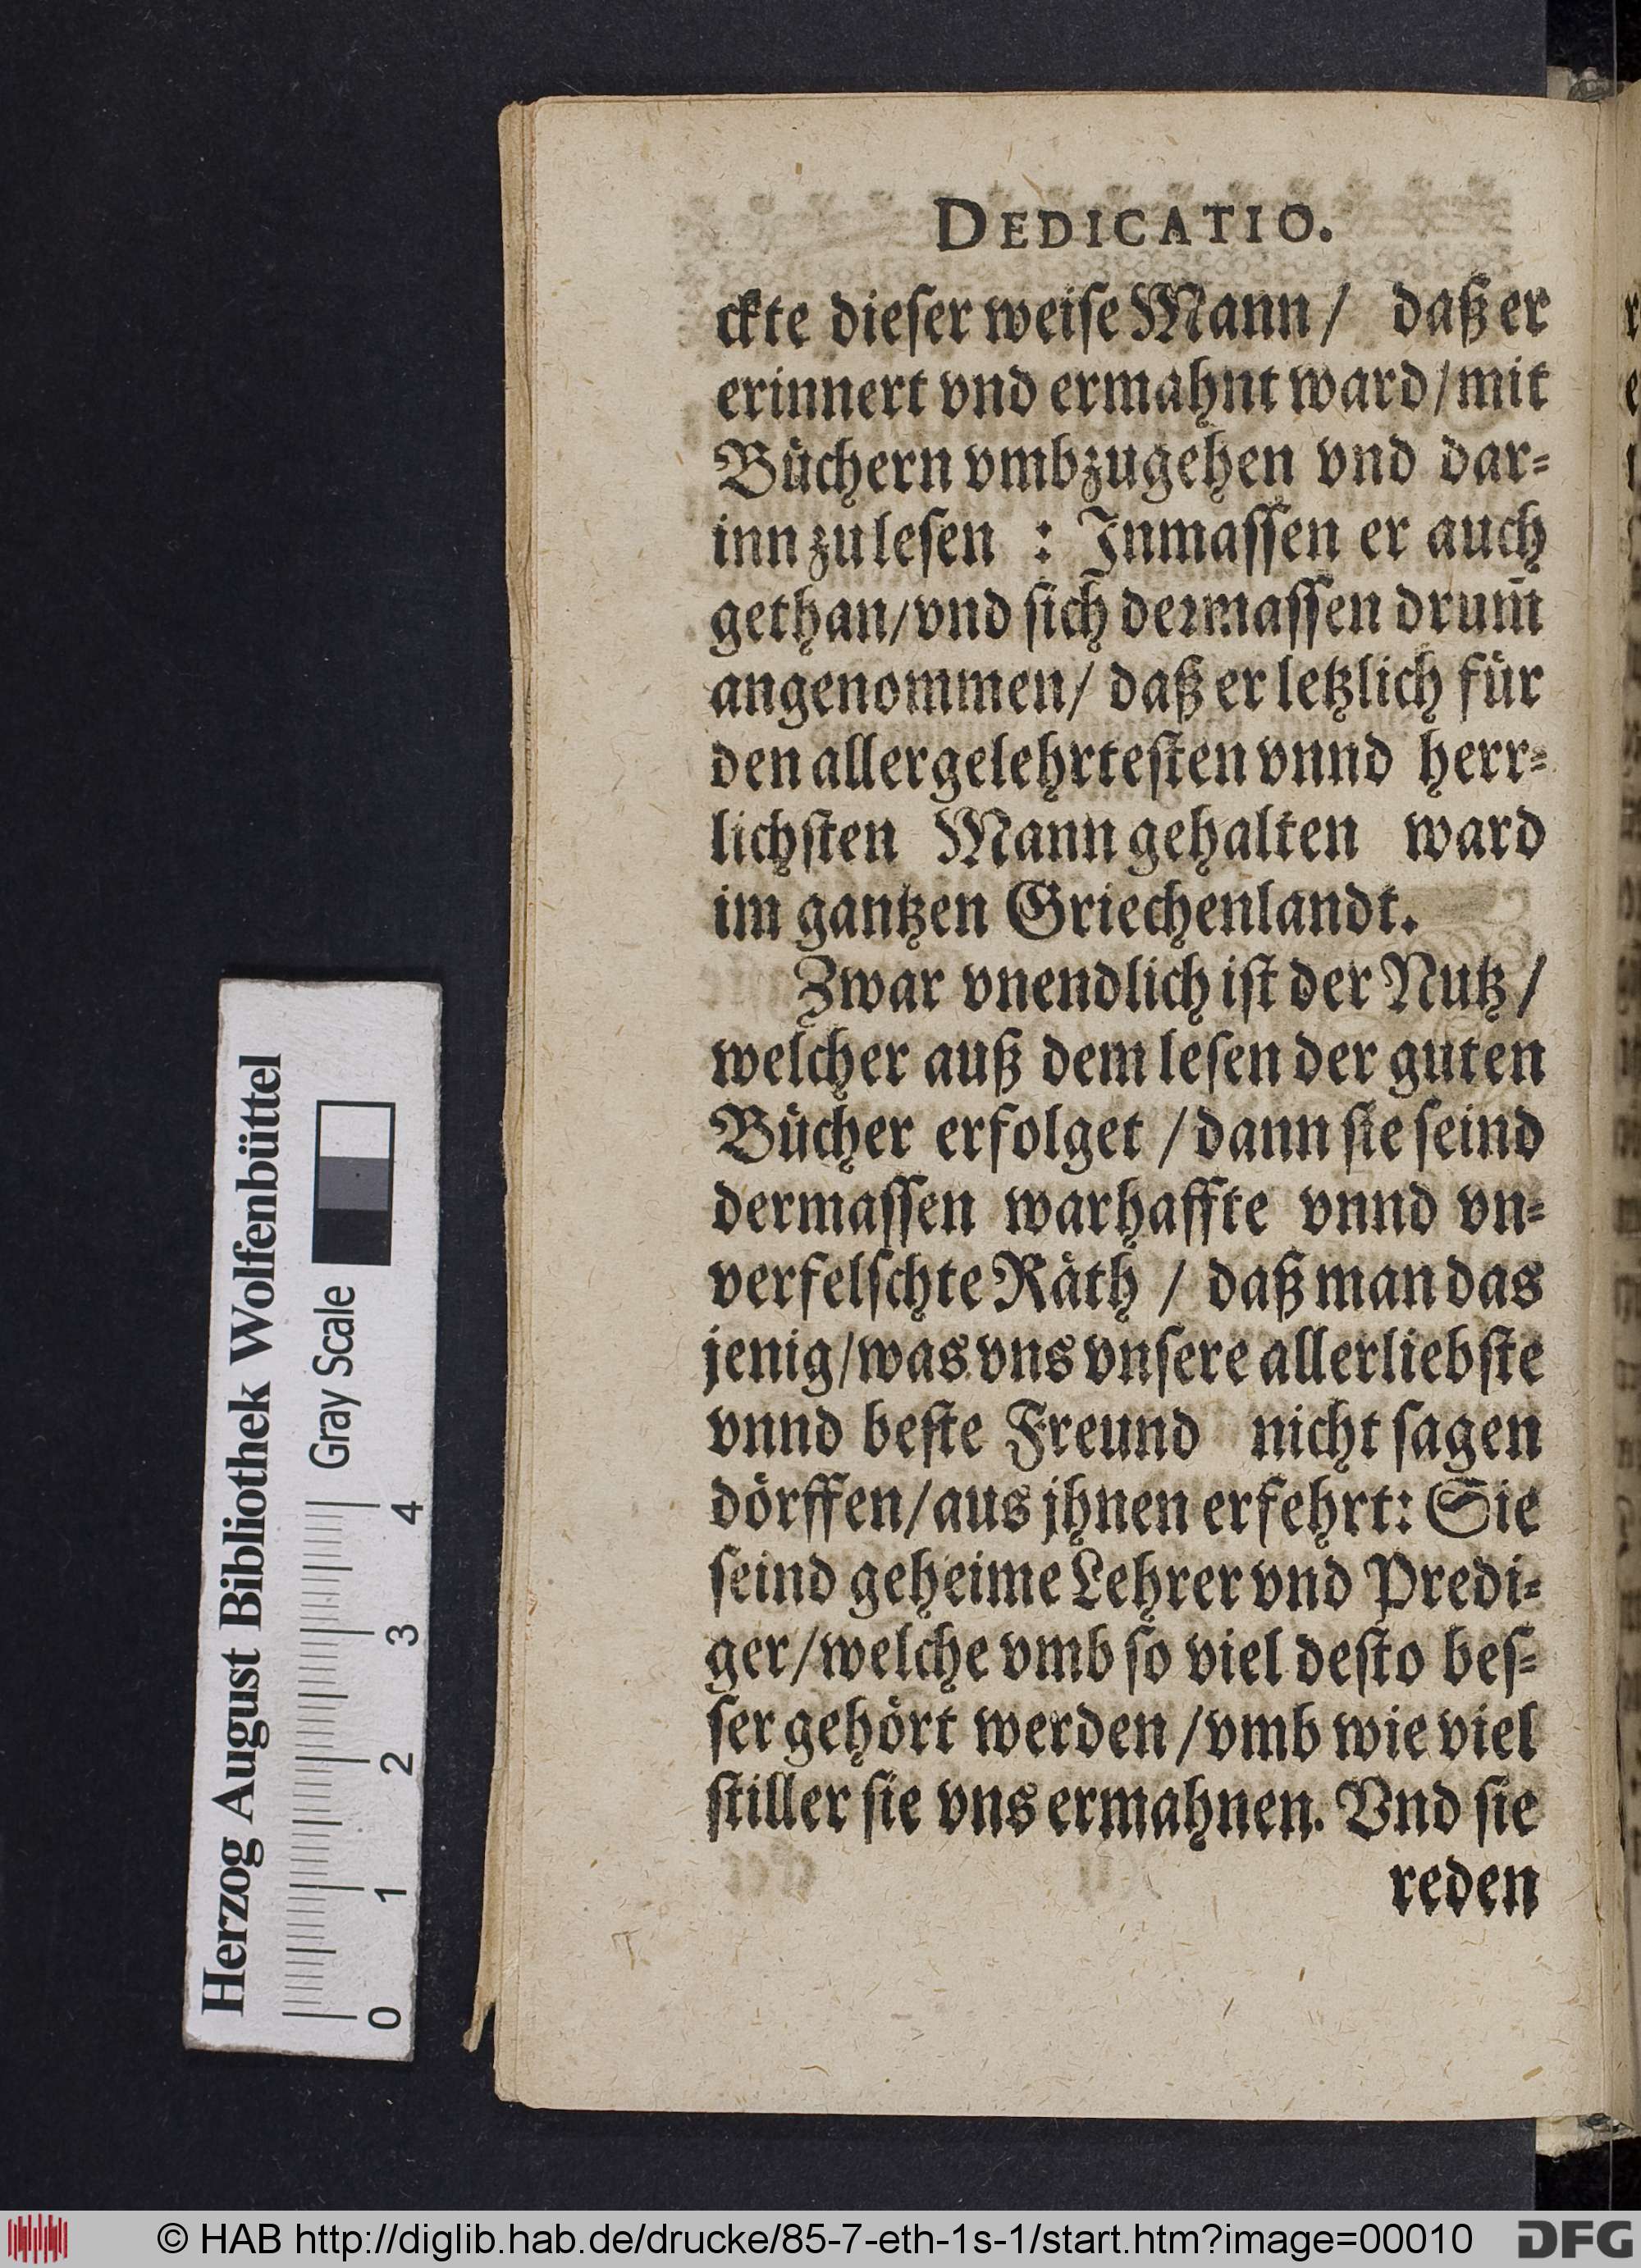 DEDICATIO.
ckte dieſer weiſe Mann / daß er
erinnert vnd ermahnt ward / mit
Buͤchern vmbzugehen vnd dar⸗
inn zu leſen : Inmaſſen er auch
gethan / vnd ſich deꝛmaſſen drum̄
angenommen / daß er letzlich fuͤr
den allergelehrteſten vnnd herr⸗
lichſten Mann gehalten ward
im gantzen Griechenlandt.
Zwar vnendlich iſt der Nutz /
welcher auß dem leſen der guten
Buͤcher erfolget / dann ſie ſeind
dermaſſen warhaffte vnnd vn⸗
verfelſchte Raͤth / daß man das
jenig / was vns vnſere allerliebſte
vnnd beſte Freund nicht ſagen
doͤrffen / aus jhnen erfehrt: Sie
ſeind geheime Lehrer vnd Predi⸗
ger / welche vmb ſo viel deſto beſ⸗
ſer gehoͤrt werden / vmb wie viel
ſtiller ſie vns ermahnen. Vnd ſie
reden
Herzog August Bibliothek Wolfenbüttel
Gray Scale
0 1 2 3 4
© HAB http://diglib.hab.de/drucke/85-7-eth-1s-1/start.htm?image=00010
DFG